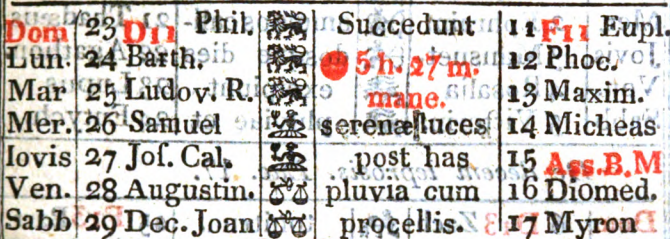 Dom 23 D11 Phil. Succedunt 11 F11 Eupl.
Lun. 24 Barth. 5 h. 27 m. 12 Phoc.
Mar 25 Ludov. R. mane. 13 Maxim.
Mer. 26 Samuel serenæ luces 14 Micheas
Iovis 27 Joſ. Cal. post has 15 Ass. B. M
Ven. 28 Augustin. pluvia cum 16 Diomed.
Sabb 29 Dec. Joan procellis. 17 Myron